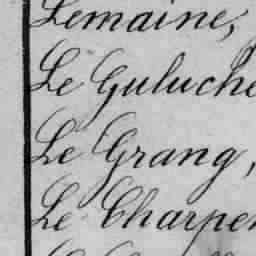 Lemaine,
Le Guluche
Le Grang,
Le Charpen